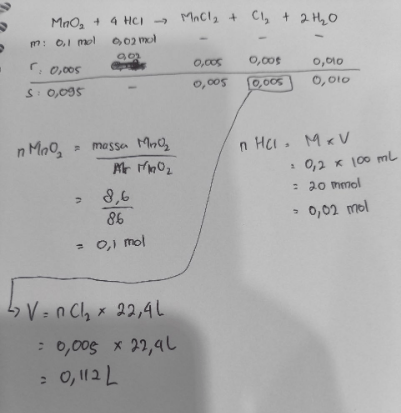 MnO₂ + 4 HCl → MnCl₂ + Cl₂ + 2 H₂O
m: 0,1 mol 0,02 mol - - -
r: 0,005 0,02 0,005 0,005 0,010
s: 0,095 - 0,005 0,005 0,010
n MnO₂ = massa MnO₂ / Mr MnO₂
= 8,6 / 86
= 0,1 mol
n HCl = M × V
= 0,2 × 100 mL
= 20 mmol
= 0,02 mol
V = n Cl₂ × 22,4 L
= 0,005 × 22,4 L
= 0,112 L